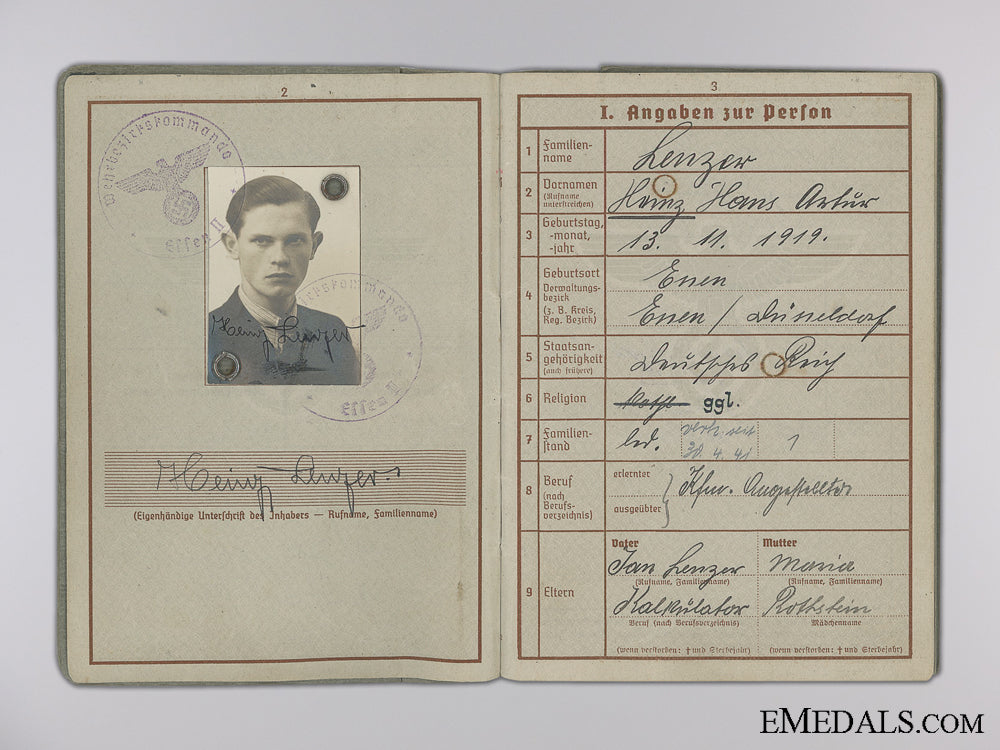 2
Wehrbezirkskommando
Essen II
Heinz Lenzer
Essen II
Heinz Lenzer
(Eigenhändige Unterschrift des Inhabers — Rufname, Familienname)
3
I. Angaben zur Person
1 Familien-
name
Lenzer
2 Vornamen
(Rufname
unterstreichen)
Heinz Hans Artur
3 Geburtstag,
-monat,
-jahr
13. 11. 1919.
4 Geburtsort
Verwaltungs-
bezirk
(z. B. Kreis,
Reg. Bezirk)
Essen
Essen / Düsseldorf
5 Staatsan-
gehörigkeit
(auch frühere)
Deutsches Reich
6 Religion
Kath. ggl.
7 Familien-
stand
led. verh. seit
30. 4. 41
1
8 Beruf
(nach
Berufs-
verzeichnis)
erlernter
ausgeübter
Kfm. Angestellter
9 Eltern
Vater
Jan Lenzer
(Rufname, Familienname)
Kalkulator
Beruf (nach Berufsverzeichnis)
(wenn verstorben: † und Sterbejahr)
Mutter
Maria
(Rufname, Familienname)
Rothstein
Mädchenname
(wenn verstorben: † und Sterbejahr)
EMEDALS.COM